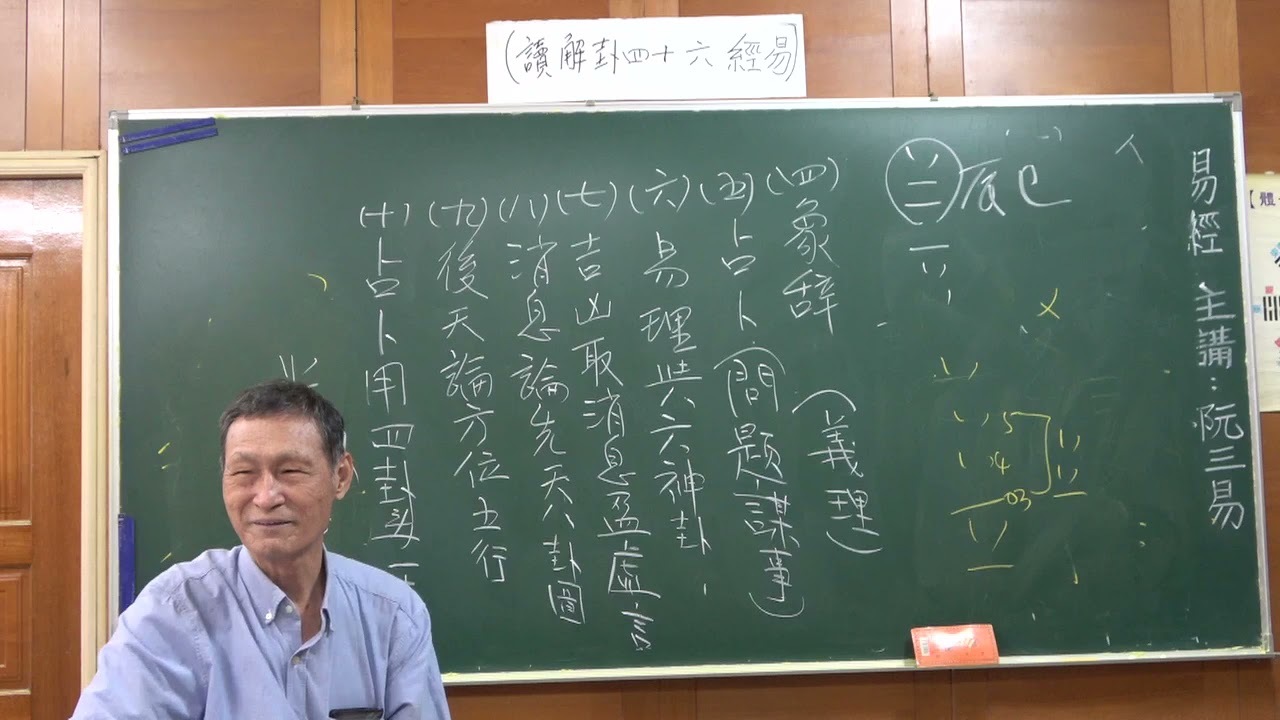 (讀解卦四十六經易)
易經 主講：阮三易
(一)
辰巳
(四)象辞(義理)
(五)占卜(問題謀事)
(六)易理與六神卦
(七)吉凶取消息盈虛言
(八)消息論先天八卦圖
(九)後天論方位五行
(十)占卜用四卦為一
5
4
03
【體